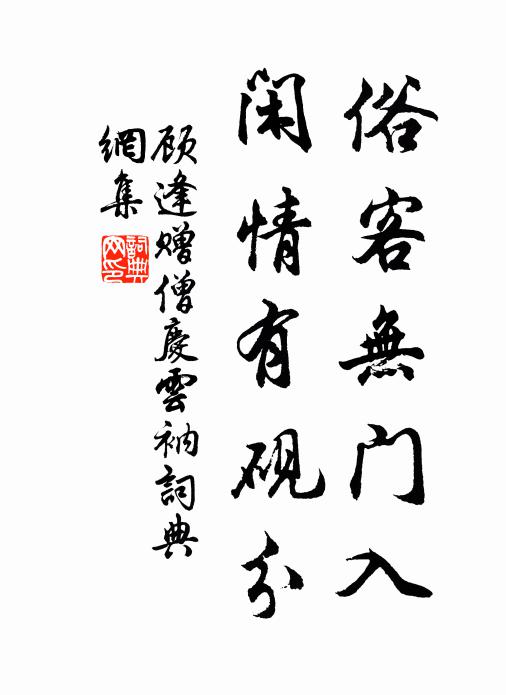 俗客無门入
闲情有砚分
顾逢赠僧慶雲衲詞典
網集
詞典
网印